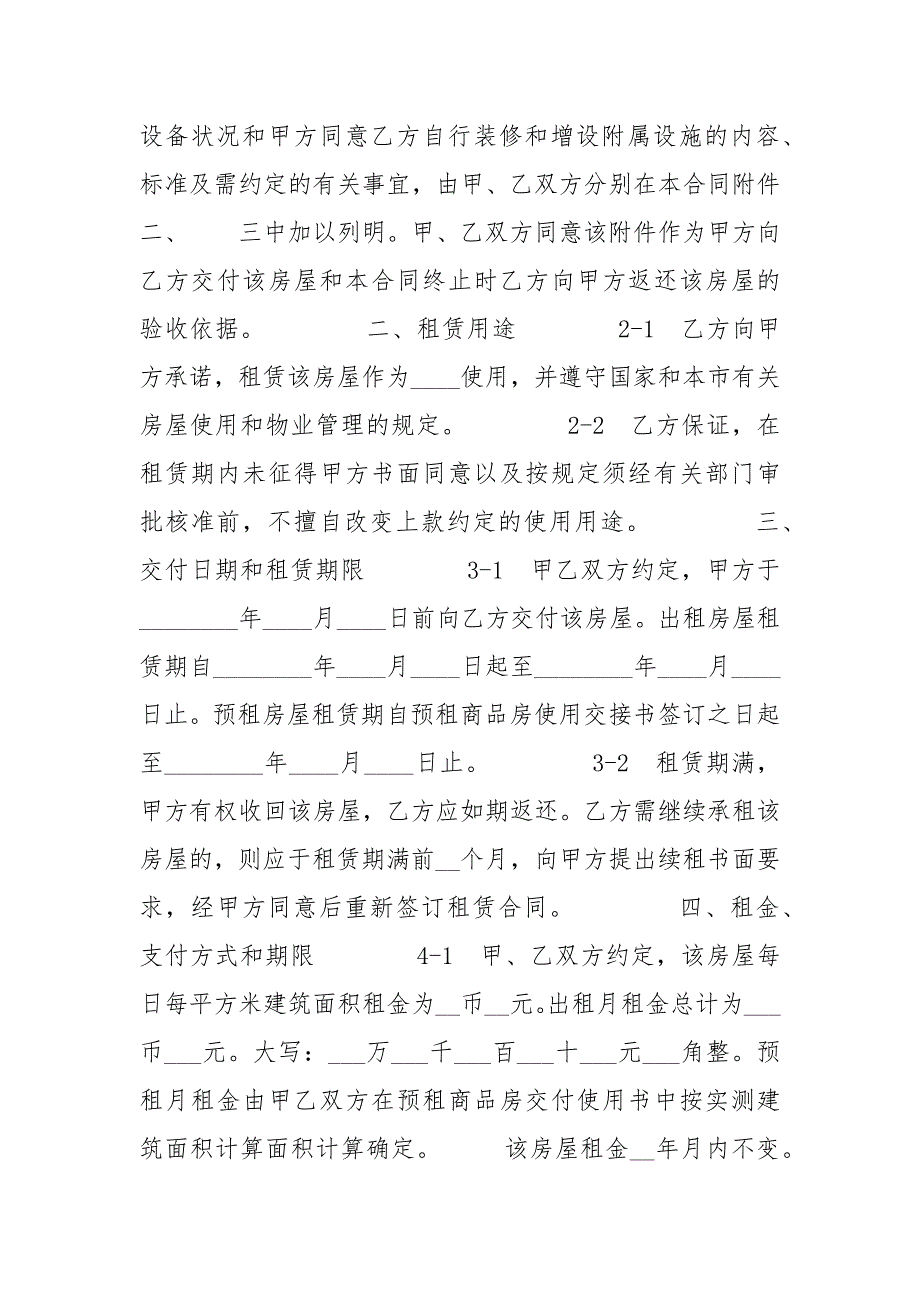 设备状况和甲方同意乙方自行装修和增设附属设施的内容、
标准及需约定的有关事宜，由甲、乙双方分别在本合同附件
二、　　三中加以列明。甲、乙双方同意该附件作为甲方向
乙方交付该房屋和本合同终止时乙方向甲方返还该房屋的
验收依据。　　　　二、租赁用途　　　　2-1　乙方向甲
方承诺，租赁该房屋作为____使用，并遵守国家和本市有关
房屋使用和物业管理的规定。　　　　2-2　乙方保证，在
租赁期内未征得甲方书面同意以及按规定须经有关部门审
批核准前，不擅自改变上款约定的使用用途。　　　　三、
交付日期和租赁期限　　　　3-1　甲乙双方约定，甲方于
________年____月____日前向乙方交付该房屋。出租房屋租
赁期自________年____月____日起至________年____月____
日止。预租房屋租赁期自预租商品房使用交接书签订之日起
至________年____月____日止。　　　　3-2　租赁期满，
甲方有权收回该房屋，乙方应如期返还。乙方需继续承租该
房屋的，则应于租赁期满前__个月，向甲方提出续租书面要
求，经甲方同意后重新签订租赁合同。　　　　四、租金、
支付方式和期限　　　　4-1　甲、乙双方约定，该房屋每
日每平方米建筑面积租金为__币__元。出租月租金总计为___
币___元。大写：___万___千___百___十___元___角整。预
租月租金由甲乙双方在预租商品房交付使用书中按实测建
筑面积计算面积计算确定。　　　该房屋租金__年月内不变。